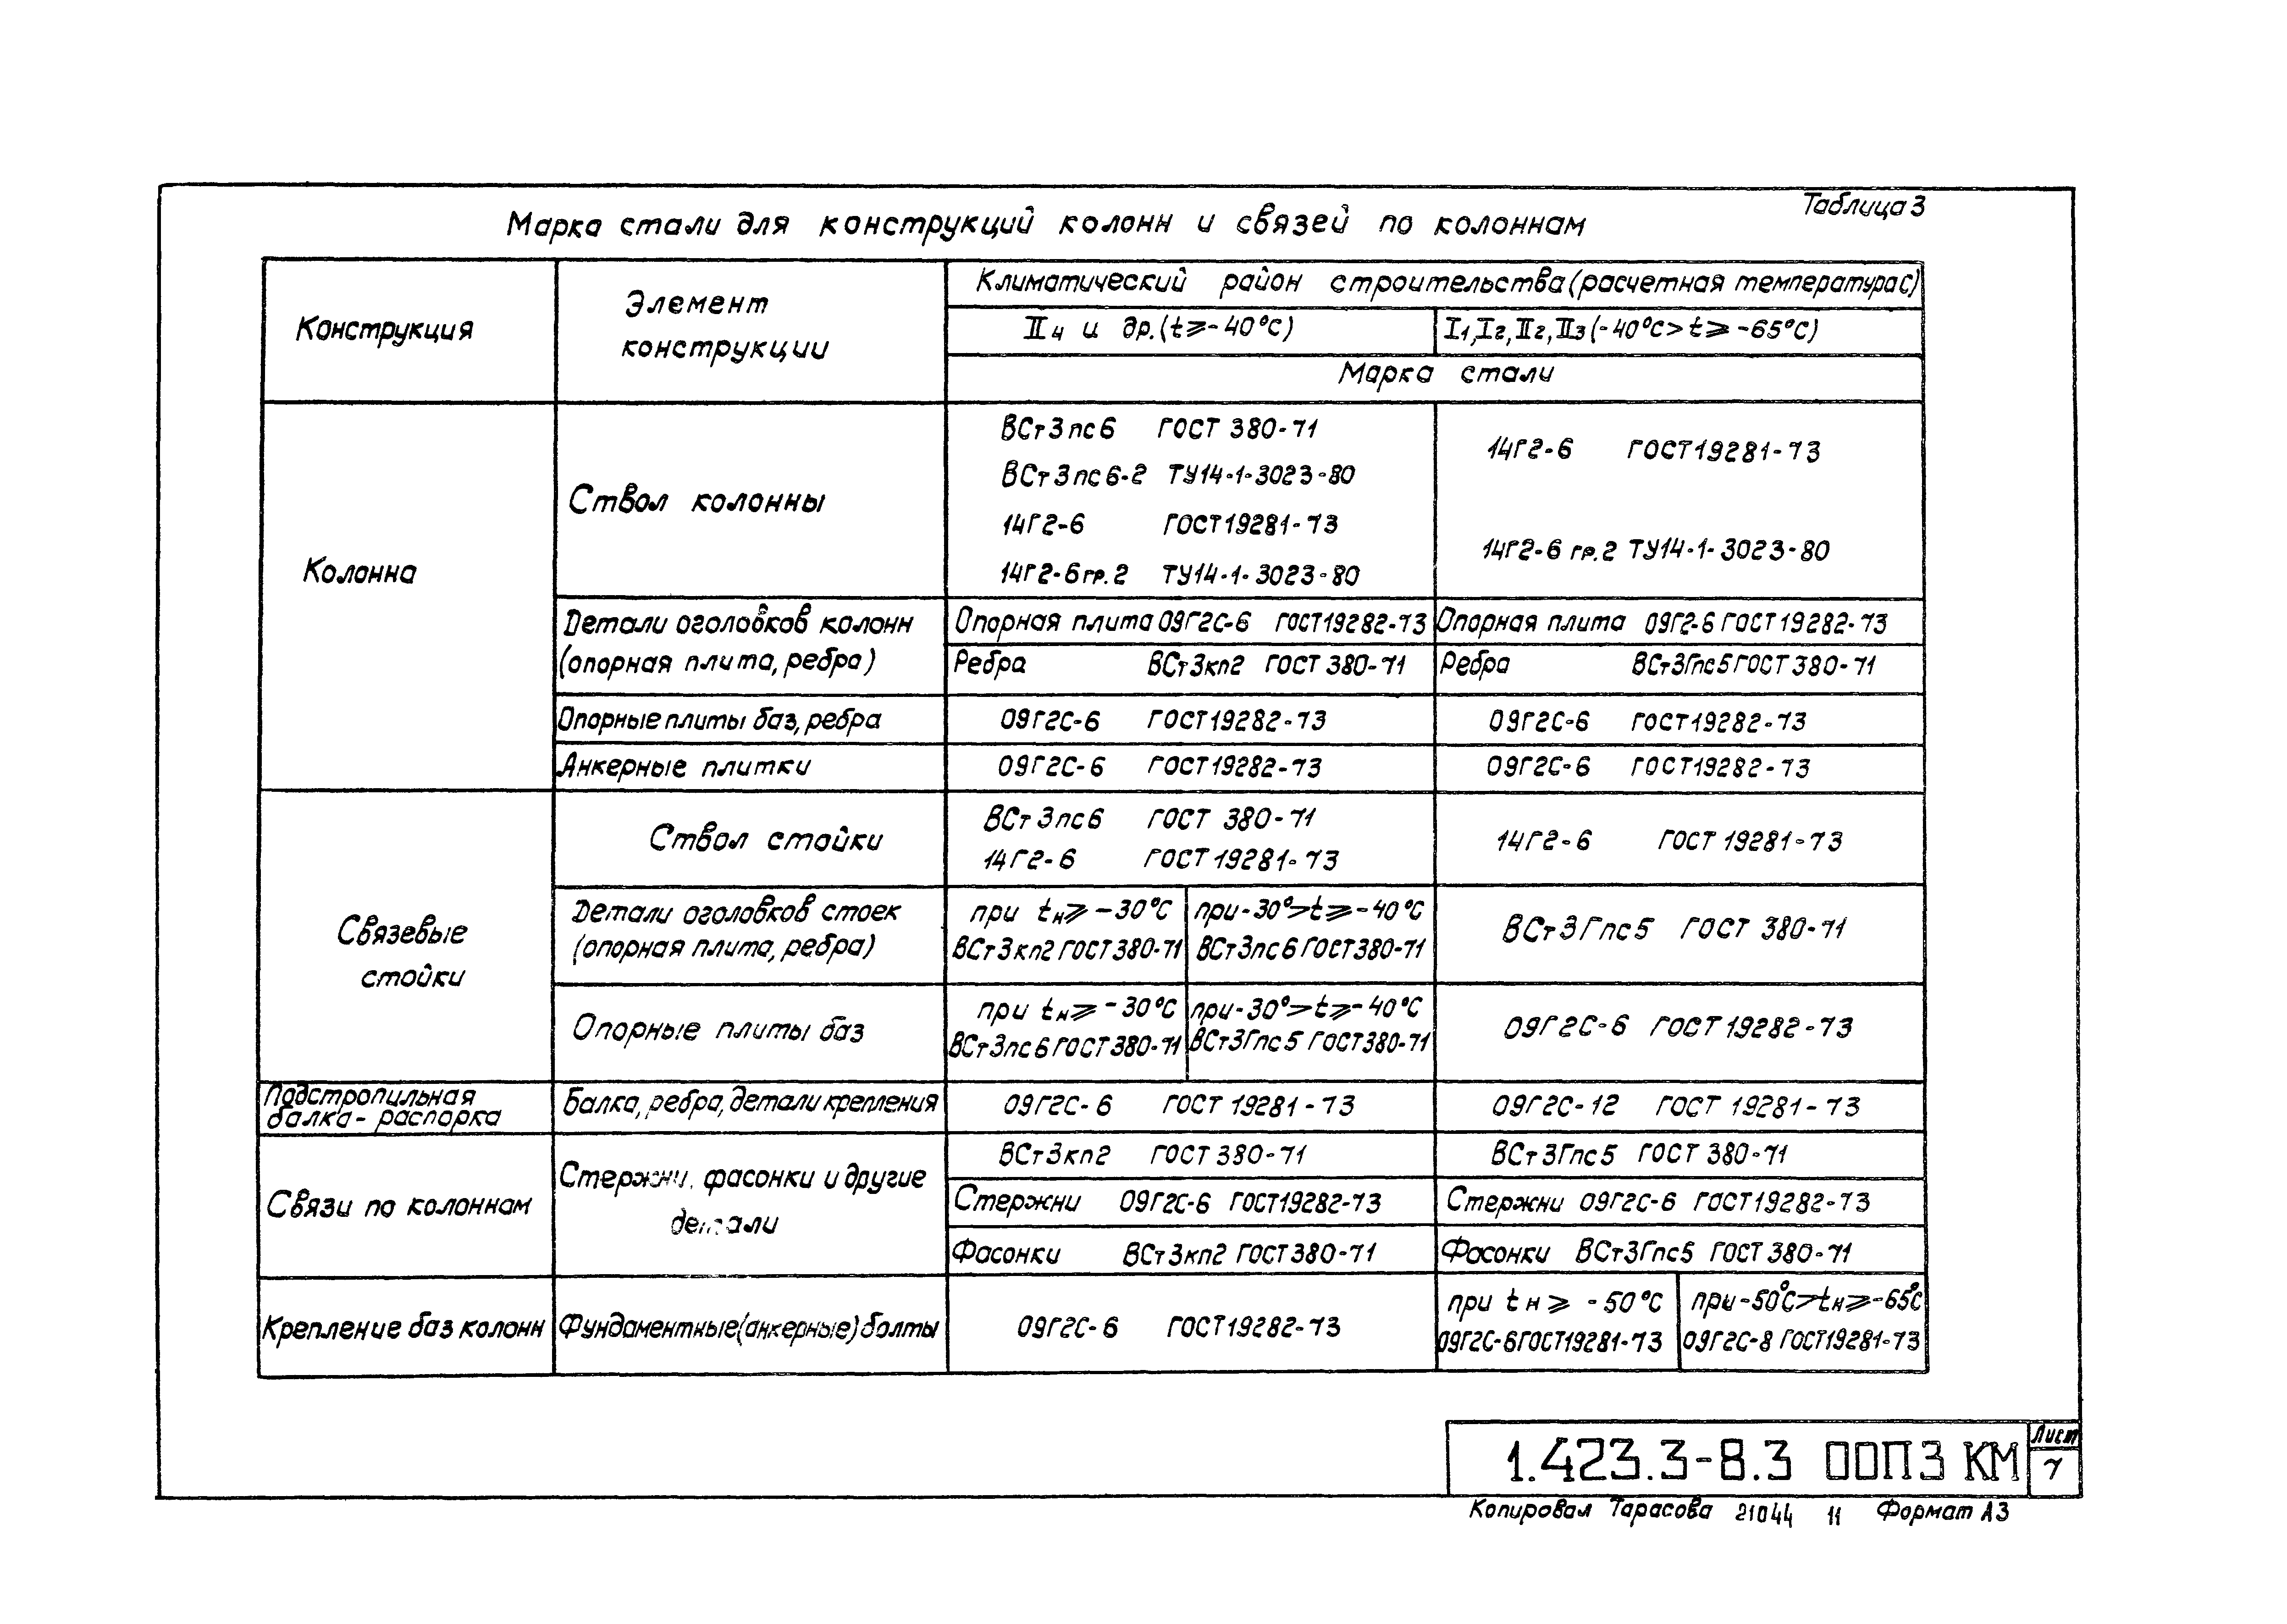 Таблица 3
Марка стали для конструкций колонн и связей по колоннам
Конструкция
Элемент
конструкции
Климатический район строительства (расчетная температура С)
II4 и др. (t ⩾ -40°С)
I1, I2, II2, II3 (-40°С > t ⩾ -65°С)
Марка стали
Колонна
Ствол колонны
ВСт3пс6 ГОСТ 380-71
ВСт3пс6-2 ТУ14-1-3023-80
14Г2-6 ГОСТ19281-73
14Г2-6гр.2 ТУ14-1-3023-80
14Г2-6 ГОСТ19281-73
14Г2-6 гр.2 ТУ14-1-3023-80
Детали оголовков колонн
(опорная плита, ребра)
Опорная плита 09Г2С-6 ГОСТ19282-73
Опорная плита 09Г2-6 ГОСТ19282-73
Ребра ВСт3кп2 ГОСТ 380-71
Ребра ВСт3Гпс5 ГОСТ 380-71
Опорные плиты баз, ребра
09Г2С-6 ГОСТ19282-73
09Г2С-6 ГОСТ19282-73
Анкерные плитки
09Г2С-6 ГОСТ19282-73
09Г2С-6 ГОСТ19282-73
Связевые
стойки
Ствол стойки
ВСт3пс6 ГОСТ 380-71
14Г2-6 ГОСТ19281-73
14Г2-6 ГОСТ 19281-73
Детали оголовков стоек
(опорная плита, ребра)
при tн ⩾ -30°С
ВСт3кп2 ГОСТ380-71
при -30° > t ⩾ -40°С
ВСт3пс6 ГОСТ380-71
ВСт3Гпс5 ГОСТ 380-71
Опорные плиты баз
при tн ⩾ -30°С
ВСт3пс6 ГОСТ380-71
при -30° > t ⩾ -40°С
ВСт3Гпс5 ГОСТ380-71
09Г2С-6 ГОСТ19282-73
Подстропильная
балка - распорка
Балка, ребра, детали крепления
09Г2С-6 ГОСТ 19281-73
09Г2С-12 ГОСТ 19281-73
Связи по колоннам
Стержни, фасонки и другие
детали
ВСт3кп2 ГОСТ 380-71
ВСт3Гпс5 ГОСТ 380-71
Стержни 09Г2С-6 ГОСТ19282-73
Стержни 09Г2С-6 ГОСТ19282-73
Фасонки ВСт3кп2 ГОСТ380-71
Фасонки ВСт3Гпс5 ГОСТ 380-71
Крепление баз колонн
Фундаментные (анкерные) болты
09Г2С-6 ГОСТ19282-73
при tн ⩾ -50°С
09Г2С-6 ГОСТ19281-73
при -50°С > tн ⩾ -65°С
09Г2С-8 ГОСТ19281-73
1.423.3-8.3 00ПЗ КМ
Лист
7
Копировал Тарасова 21044 11 Формат А3